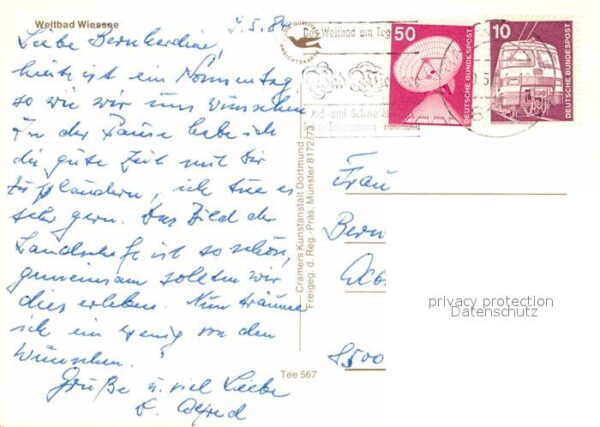 Weltbad Wiessee
9.5.84
Liebe Bernhardine,
heute ist ein Sonnentag
so wie wir uns wünschen
In der Pause habe ich
die gute Zeit mit Dir
zu plaudern, ich tue es
sehr gern. Das Bild der
Landschaft ist so schön,
gemeinsam sollten wir
dies erleben. Nun träume
ich ein wenig von den
Wünschen.
Grüße u. viel Liebe
D. Alfred
Das Weltbad am Teg
Bad Wie
50
DEUTSCHE BUNDESPOST
10
DEUTSCHE BUNDESPOST
Cramers Kunstanstalt Dortmund
Freigeg. d. Reg.-Präs. Münster 8172/73
Tee 567
Frau
Bern
8500
privacy protection
Datenschutz